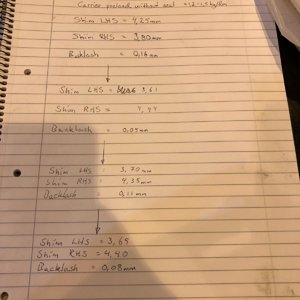 Carrier preload without seal = 1,2-1,5 kg/
Shim LHS = 4,25mm
Shim RHS = 3,80mm
Backlash = 0,16mm
Shim LHS = 3,61
Shim RHS = 4,44
Backlash = 0,05mm
Shim LHS = 3,70mm
Shim RHS = 4,35mm
Backlash = 0,11mm
Shim LHS = 3,65
Shim RHS = 4,40
Backlash = 0,08mm